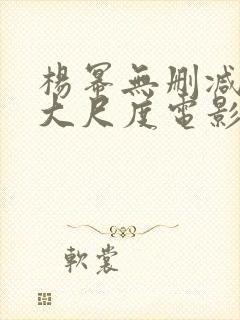 楊冪無刪減
大尺度電影
軟裳